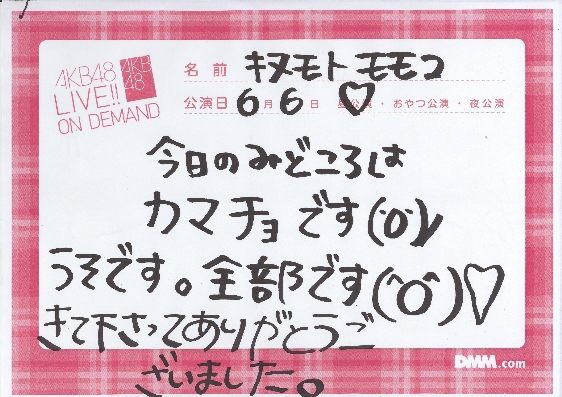 AKB48
LIVE!!
ON DEMAND
AKB
48
名前 キヌモトモモコ
公演日 6月6日 ♡公演・おやつ公演・夜公演
今日のみどころは
カマチョです(ö)ノ
うそです。全部です(^O^)♡
きて下さってありがとうご
ざいました。
DMM.com